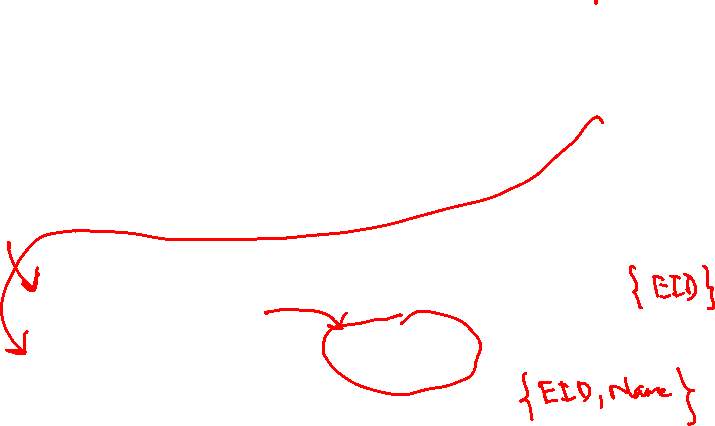 {EID}
{EID, Name}